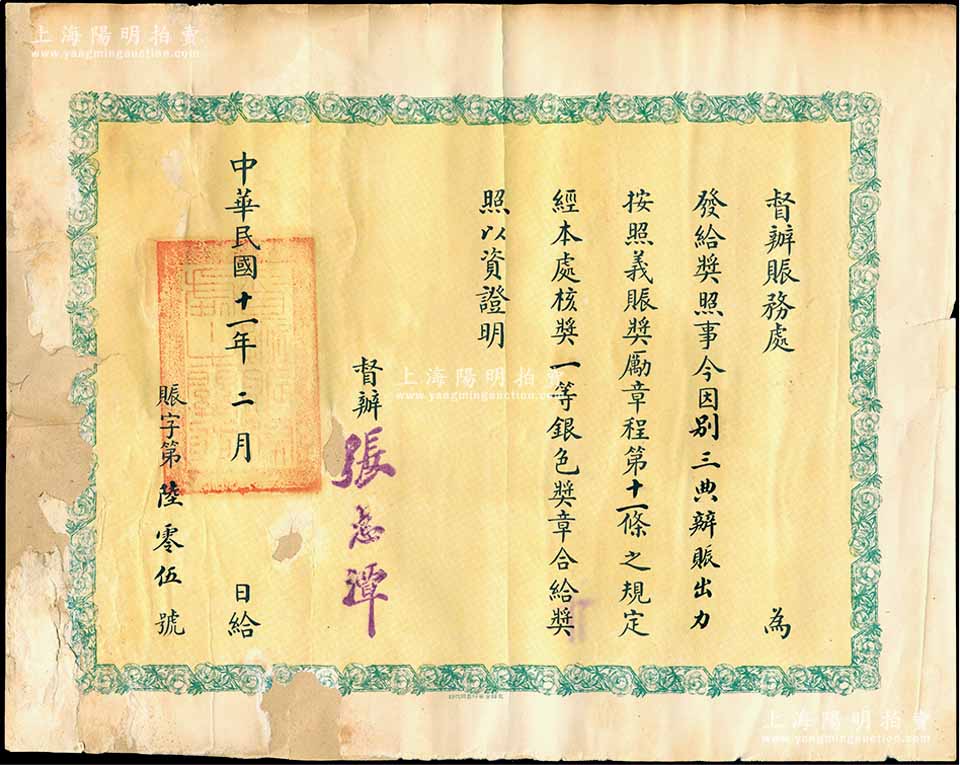 上海陽明拍賣
www.yangmingauction.com
督辦賑務處 為
發給獎照事今因別三典辦賑出力
按照義賑獎勵章程第十一條之規定
經本處核獎一等銀色獎章合給獎
照以資證明
督辦張志潭
中華民國十一年二月 日給
賑字第陸零伍號
上海陽明拍賣
www.yangmingauction.com
上海陽明拍賣
www.yangmingauction.com